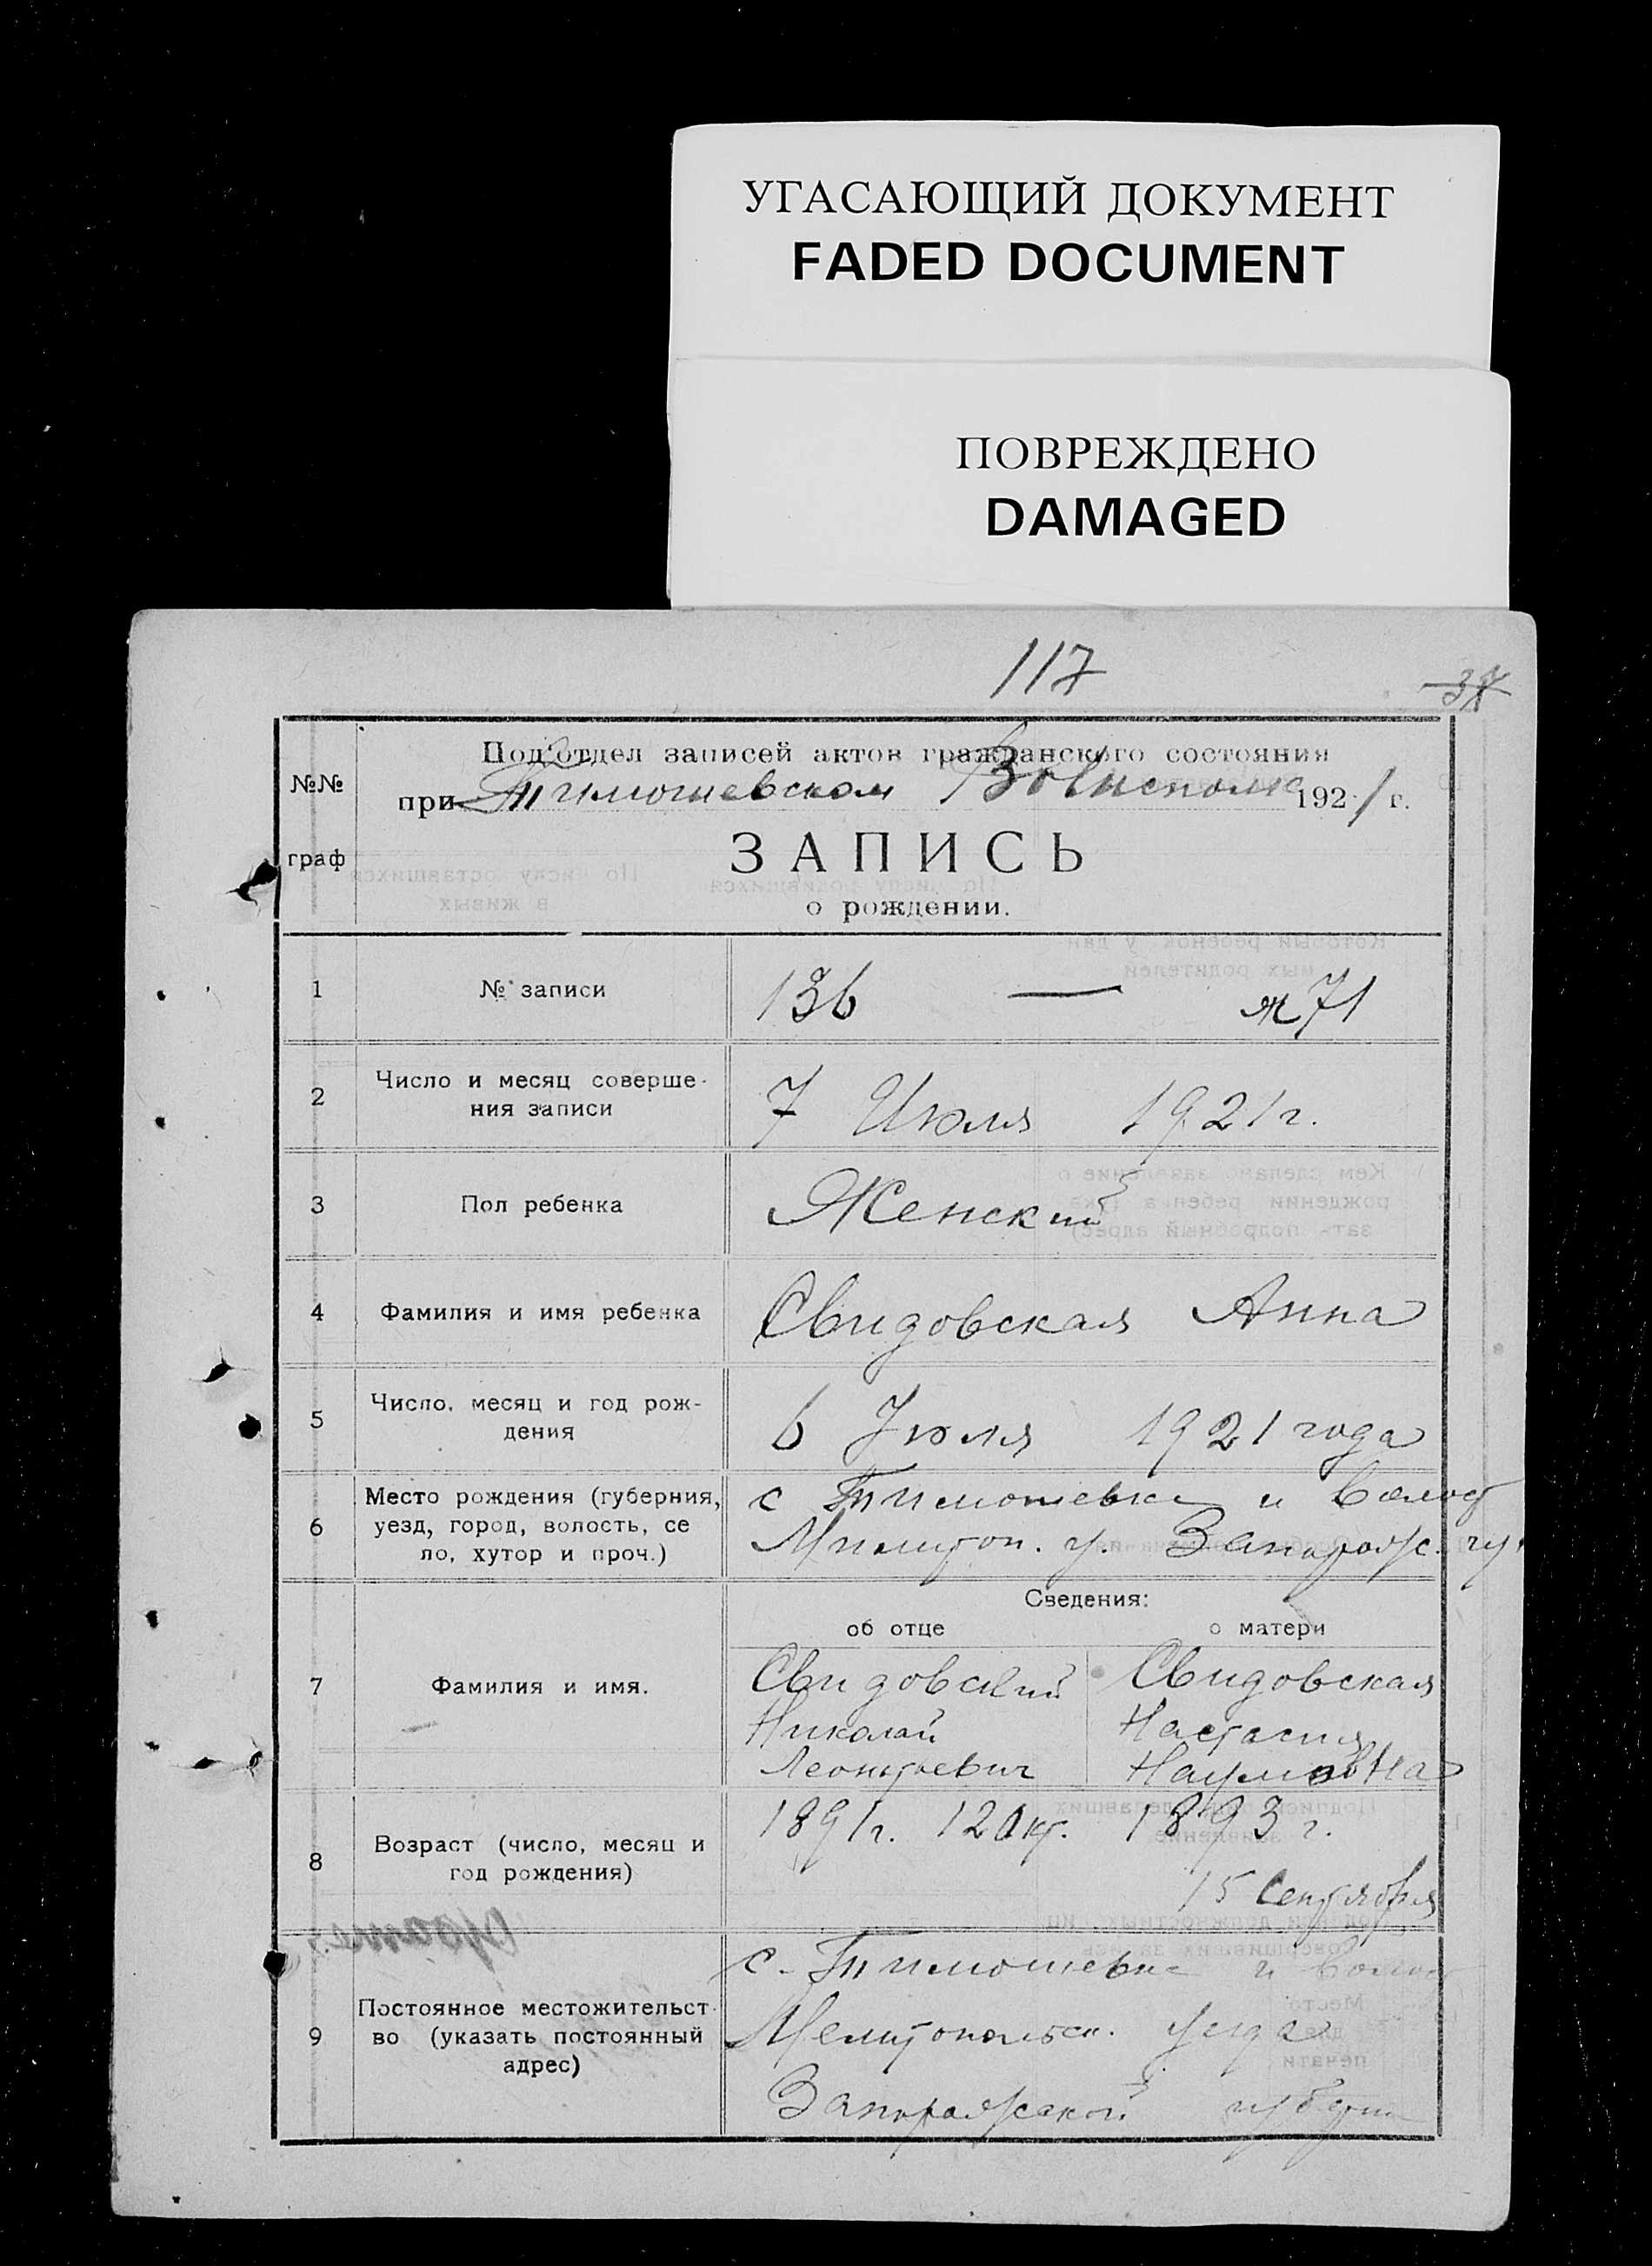 УГАСАЮЩИЙ ДОКУМЕНТ
FADED DOCUMENT
ПОВРЕЖДЕНО
DAMAGED
117
37
Под'отдел записей актов гражданского состояния
при Тимошевском Волисполк 1921 г.
№№
граф
ЗАПИСЬ
о рождении.
1 № записи 136 — ж 71
2 Число и месяц соверше-
ния записи 7 Июля 1921 г.
3 Пол ребенка Женский
4 Фамилия и имя ребенка Свидовская Анна
5 Число, месяц и год рож-
дения 6 Июля 1921 года
6 Место рождения (губерния, с Тимошевка и волост
уезд, город, волость, се
ло, хутор и проч.) Милитоп. у. Запорож. гу.
Сведения:
об отце о матери
7 Фамилия и имя. Свидовский Свидовская
Николай Настасия
Леонтьевич Наумовна
8 Возраст (число, месяц и 1891 г. 12 Окт. 1893 г.
год рождения) 15 Сентября
9 Постоянное местожительст- с. Тимошевке и волост
во (указать постоянный Мелитопольск. уезда
адрес) Запорожской губерни